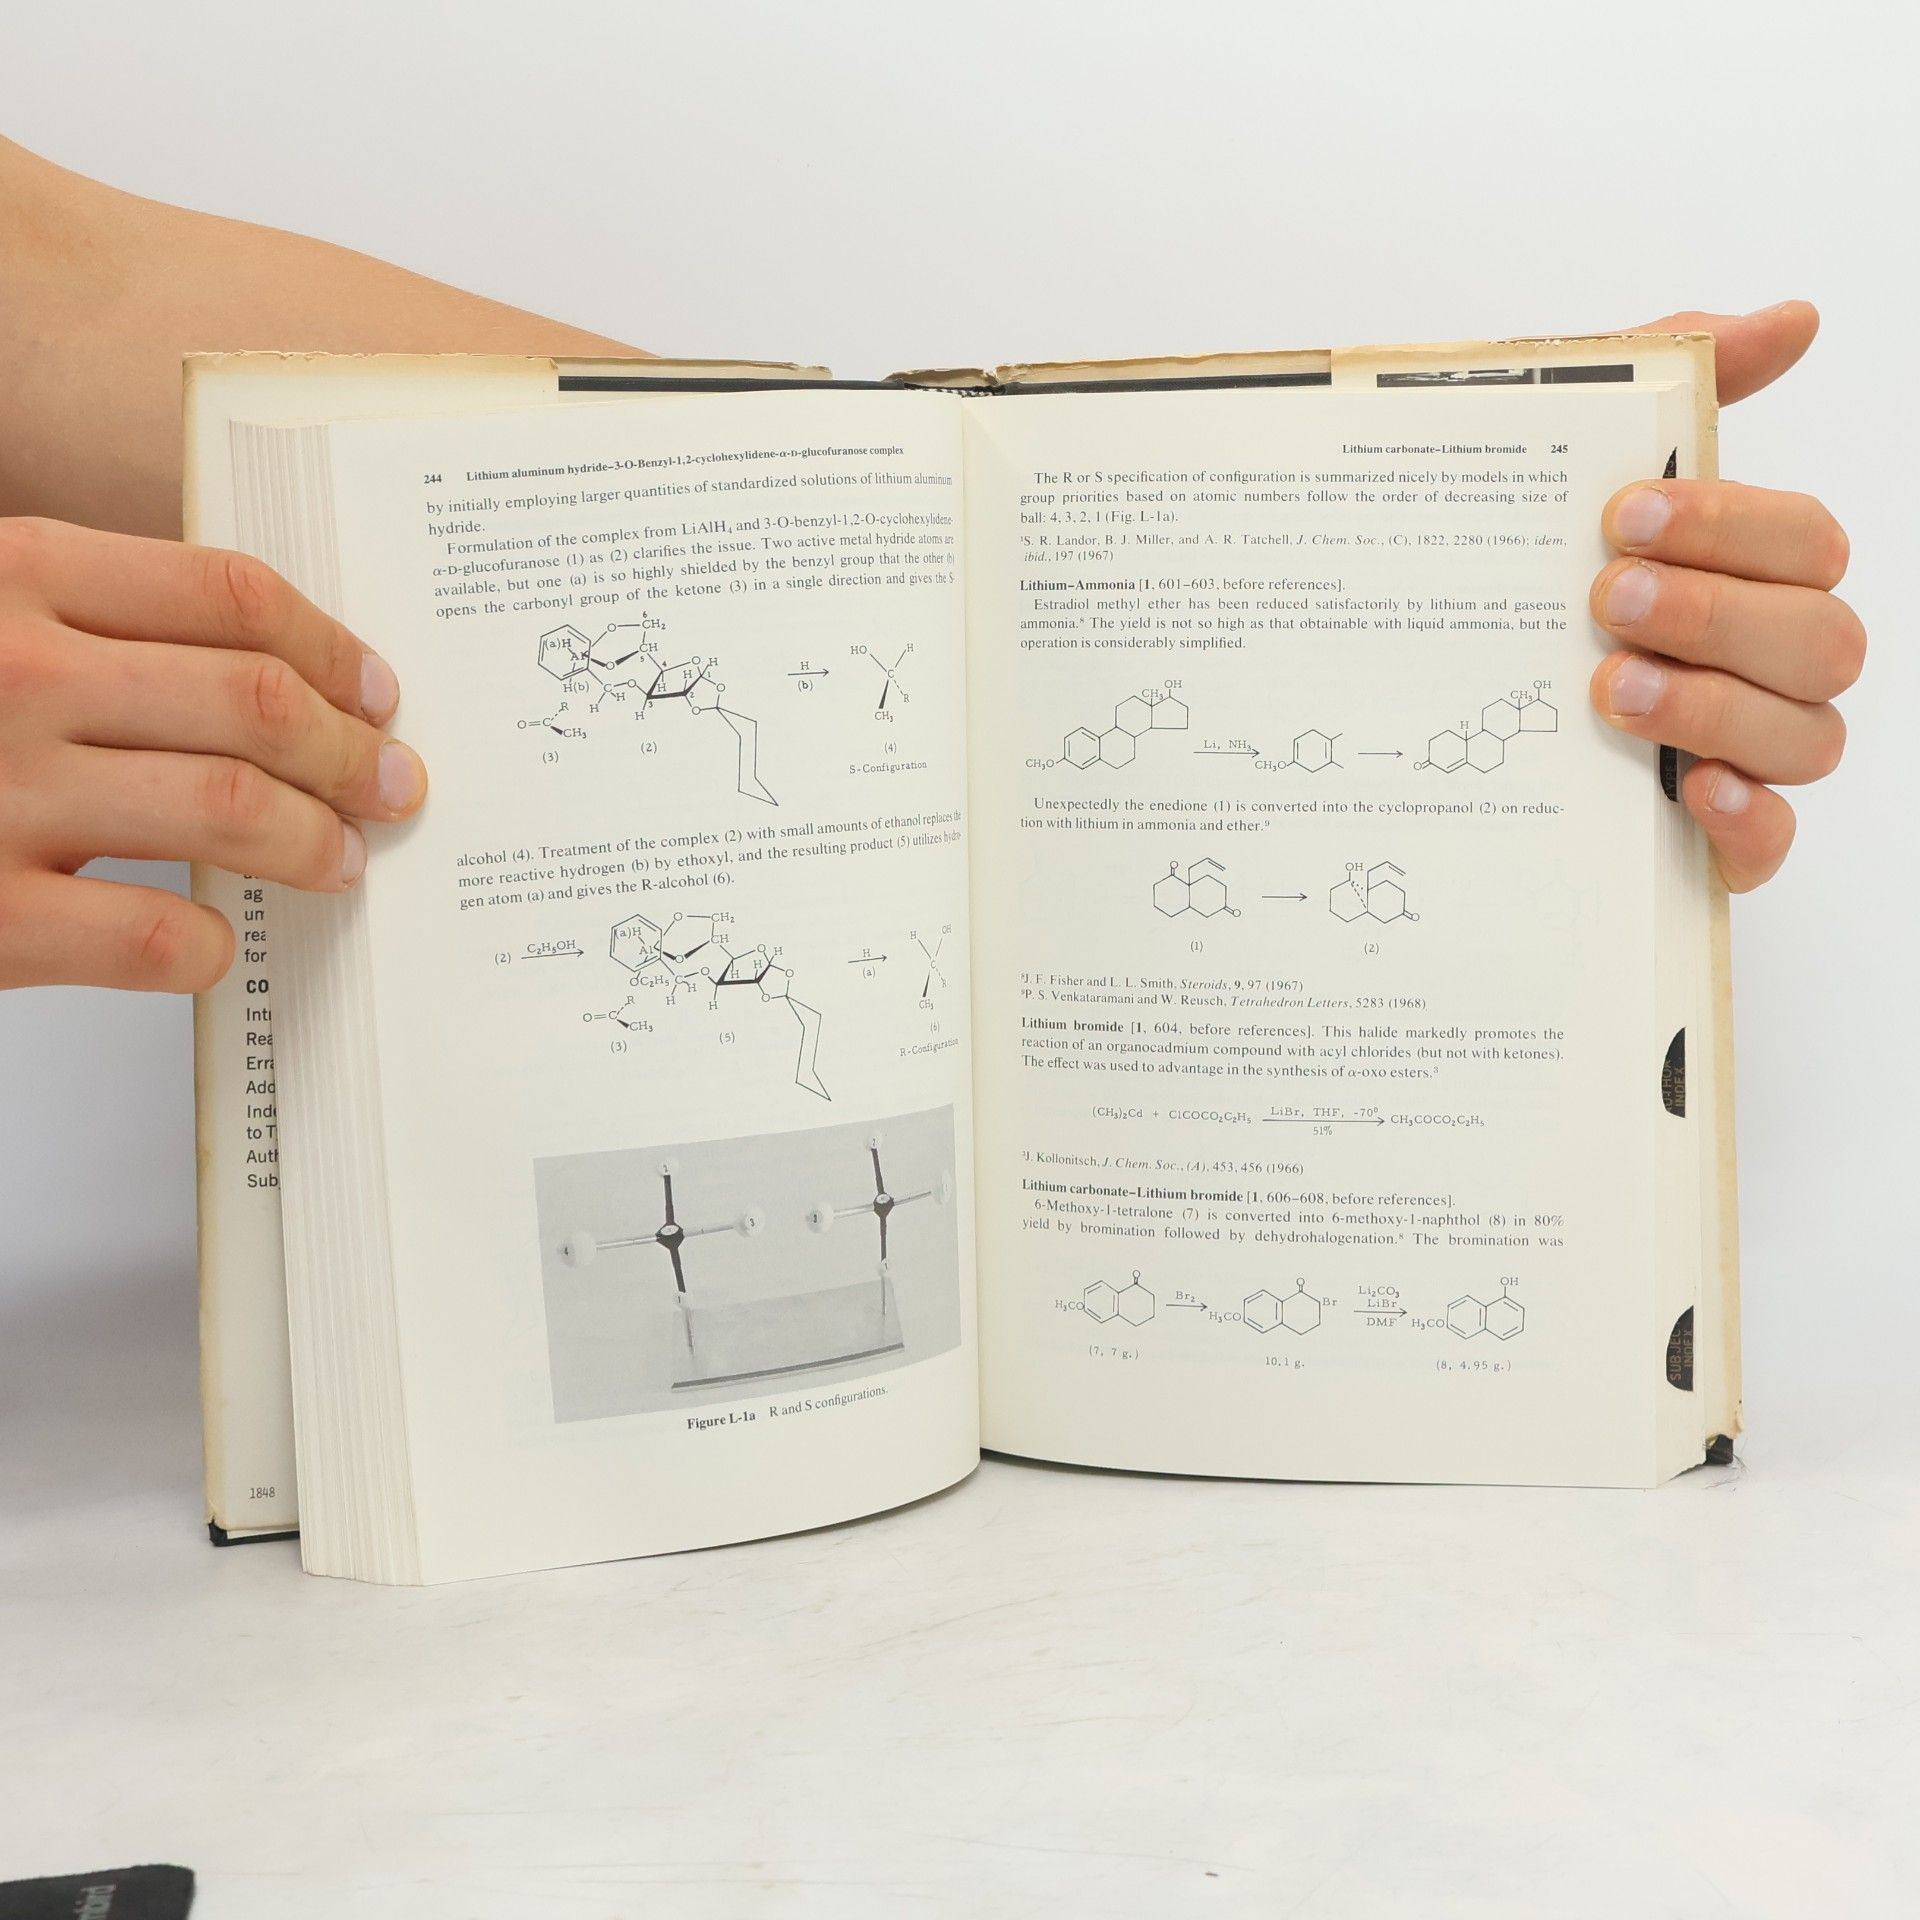 244 Lithium aluminum hydride–3-O-Benzyl-1,2-cyclohexylidene-α-D-glucofuranose complex
by initially employing larger quantities of standardized solutions of lithium aluminum
hydride.
Formulation of the complex from LiAlH₄ and 3-O-benzyl-1,2-O-cyclohexylidene-
α-D-glucofuranose (1) as (2) clarifies the issue. Two active metal hydride atoms are
available, but one (a) is so highly shielded by the benzyl group that the other (b)
opens the carbonyl group of the ketone (3) in a single direction and gives the S-
6
O CH₂
(a)H
Al O 5 CH
H(b) C O 4 O H
H H H H 1
3 2 O
H O
R
O=C
CH₃
(3) (2)
H
(b)
HO H
C
R
CH₃
(4)
S-Configuration
alcohol (4). Treatment of the complex (2) with small amounts of ethanol replaces the
more reactive hydrogen (b) by ethoxyl, and the resulting product (5) utilizes hydro-
gen atom (a) and gives the R-alcohol (6).
(2) C₂H₅OH
O CH₂
(a)H
Al O CH
OC₂H₅ C O O H
H H H H O
H O
R
O=C
CH₃
(3) (5)
H
(a)
H OH
C
R
CH₃
(6)
R-Configuration
2 2
4 3 3
1 1
Figure L-1a R and S configurations.
Lithium carbonate–Lithium bromide 245
The R or S specification of configuration is summarized nicely by models in which
group priorities based on atomic numbers follow the order of decreasing size of
ball: 4, 3, 2, 1 (Fig. L-1a).
¹S. R. Landor, B. J. Miller, and A. R. Tatchell, J. Chem. Soc., (C), 1822, 2280 (1966); idem,
ibid., 197 (1967)
Lithium–Ammonia [1, 601–603, before references].
Estradiol methyl ether has been reduced satisfactorily by lithium and gaseous
ammonia.⁸ The yield is not so high as that obtainable with liquid ammonia, but the
operation is considerably simplified.
CH₃ OH
CH₃O
Li, NH₃
CH₃O
CH₃ OH
H
O
Unexpectedly the enedione (1) is converted into the cyclopropanol (2) on reduc-
tion with lithium in ammonia and ether.⁹
O
O
OH
O
(1) (2)
⁸J. F. Fisher and L. L. Smith, Steroids, 9, 97 (1967)
⁹P. S. Venkataramani and W. Reusch, Tetrahedron Letters, 5283 (1968)
Lithium bromide [1, 604, before references]. This halide markedly promotes the
reaction of an organocadmium compound with acyl chlorides (but not with ketones).
The effect was used to advantage in the synthesis of α-oxo esters.³
(CH₃)₂Cd + ClCOCO₂C₂H₅ LiBr, THF, -70° CH₃COCO₂C₂H₅
51%
³J. Kollonitsch, J. Chem. Soc., (A), 453, 456 (1966)
Lithium carbonate–Lithium bromide [1, 606–608, before references].
6-Methoxy-1-tetralone (7) is converted into 6-methoxy-1-naphthol (8) in 80%
yield by bromination followed by dehydrohalogenation.⁸ The bromination was
O
H₃CO
Br₂
O
Br
H₃CO
Li₂CO₃
LiBr
DMF
OH
H₃CO
(7, 7 g.) 10.1 g. (8, 4.95 g.)
AUTHOR
INDEX
SUBJEC
INDEX
ag
un
rea
for
CO
Intr
Rea
Erra
Add
Inde
to T
Auth
Sub
1848